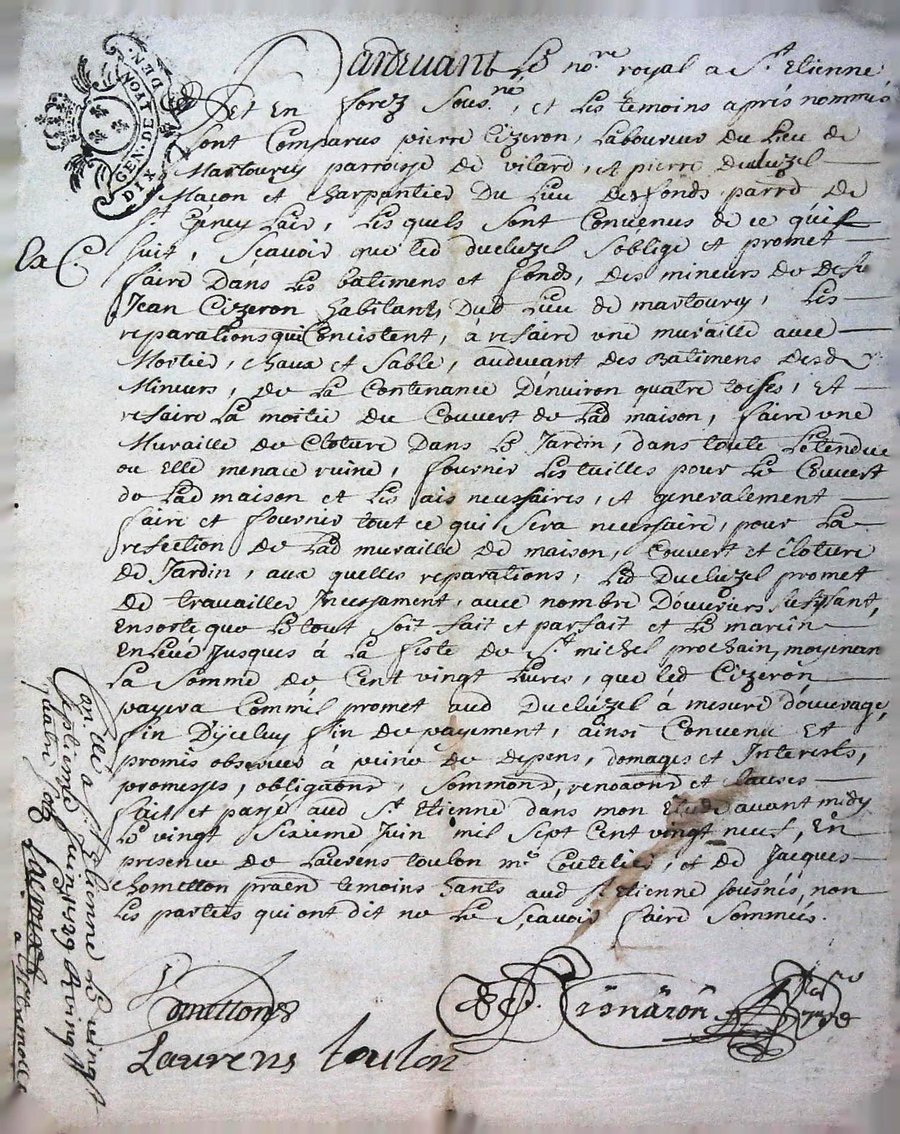 GEN. DE LYON
DIX DEN.
Pardevant Le no.re royal a S.t Etienne
et En forez sous.né, et Les temoins aprés nommés
sont Comparus pierre Cizeron, Laboureur du Lieu de
Martourey parroisse de vilard, et pierre Ducluzel
Maçon et Charpentier Du Lieu des fonds parr.e de
S.t Geney Lair, Les quels sont Convenus de ce qui
suit, Scavoir que led Ducluzel s'oblige et promet
faire Dans Les batimens et fonds, des mineurs de
Jean Cizeron habitants Dud Lieu de martourey, Les
reparations qui Concistent, à refaire une muraille avec
Mortier, chaux et Sable, audevant des Batimens desd
Mineurs, de La Contenance Denviron quatre toises, Et
refaire La moitie du Couvert de Lad maison, faire une
Muraille de Cloture Dans Le Jardin, dans toute L'étendue
ou Elle menace ruine, fournir Les tuilles pour Le Couvert
de Lad maison et Les ais necessaires, et generalement
faire et fournir tout ce qui sera necessaire, pour La
refection de Lad muraille de maison, Couvert et clôture
de Jardin, aux quelles reparations, Led Ducluzel promet
de travailler Incessament, avec nombre D'ouvriers sufisant,
Ensorte que Le tout soit fait et parfait et Le marein
Enlevé Jusques à La feste de S.t michel prochain, moyenan
La Somme de Cent vingt Livres, que led Cizeron
payera Comm'il promet aud Ducluzel à mesure d'ouvrage,
fin D'yceluy fin de payement, ainsi Convenu Et
promis observer à peine de depens, domages et Interests,
promesses, obligaons, Sommons, renonaons et clauses
fait et passé aud S.t Etienne dans mon Etude avant midy
Le vingt sixieme Juin mil sept Cent vingt neuf, En
presence de Laurens toulon m.e Coutelier, et de Jacques
Chometton praen temoins hants aud S.t Etienne sousnés, non
Les parties qui ont dit ne Le Scavoir faire sommés.
Chometton
Laurens toulon
a S.t Etienne Le vingt
septieme Juin 1729 R vingt
quatre